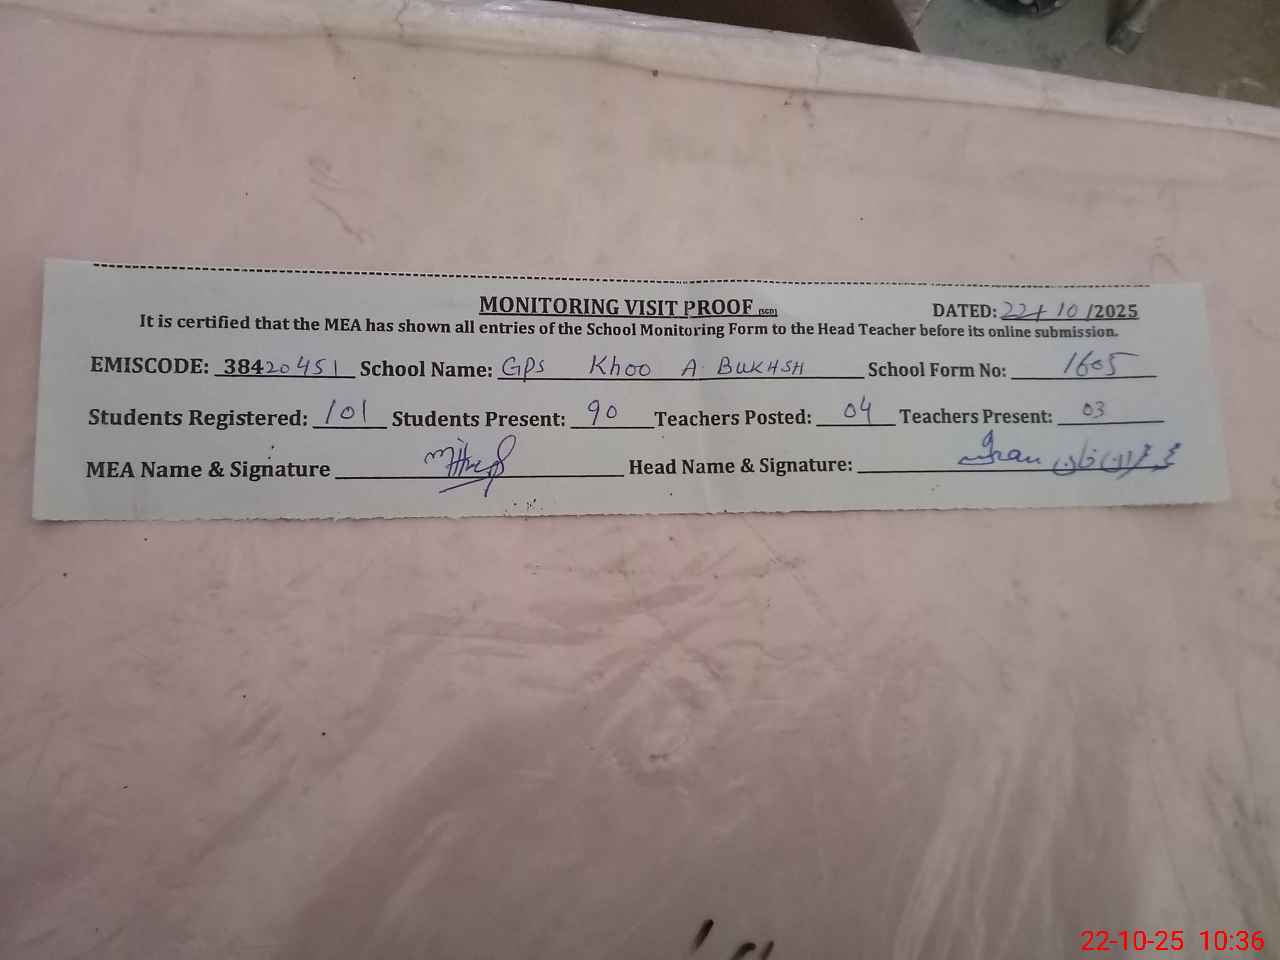 MONITORING VISIT PROOF (SCD) DATED: 22/10/2025
It is certified that the MEA has shown all entries of the School Monitoring Form to the Head Teacher before its online submission.
EMISCODE: 38420451 School Name: GPS Khoo A. BUKHSH School Form No: 1605
Students Registered: 101 Students Present: 90 Teachers Posted: 04 Teachers Present: 03
MEA Name & Signature Head Name & Signature:
22-10-25 10:36